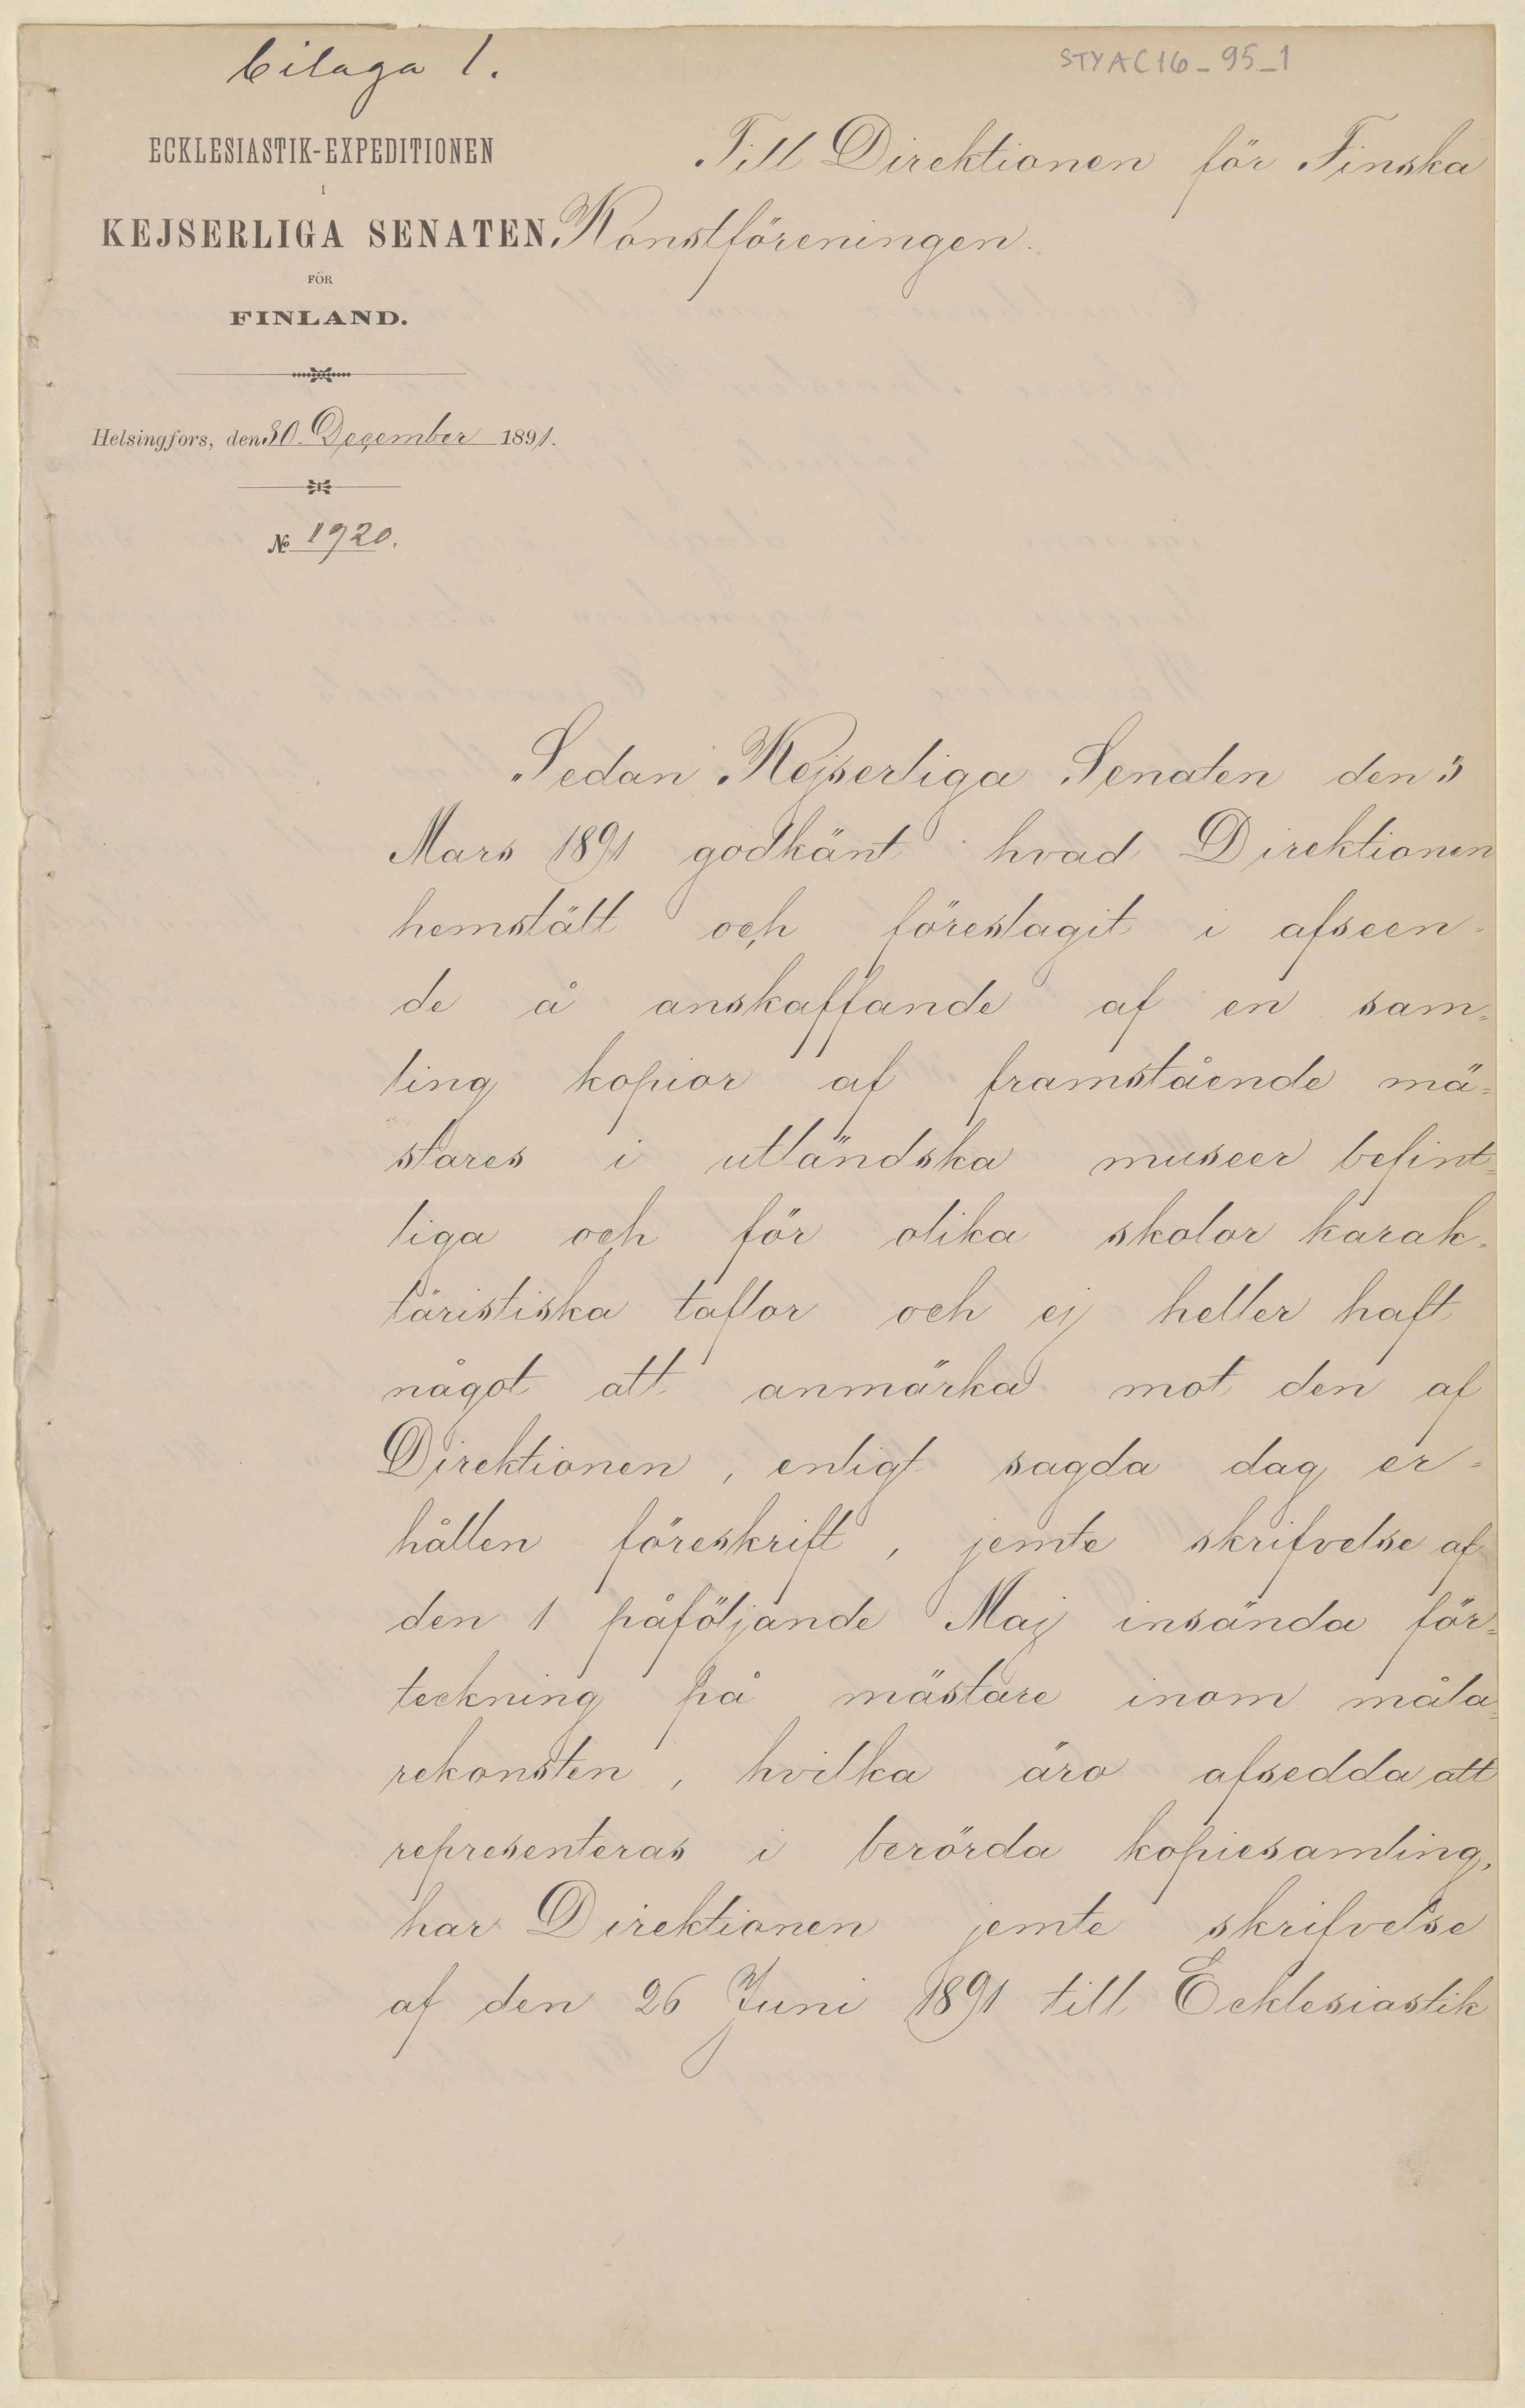 bilaga 1.
STYAC16_95_1
ECKLESIASTIK-EXPEDITIONEN
I
KEJSERLIGA SENATEN
FÖR
FINLAND.
Helsingfors, den 30. December 1891.
№ 1920.
Till Direktionen för Finska
Konstföreningen.
Sedan Kejserliga Senaten den 3
Mars 1891 godkänt hvad Direktionen
hemstält och föreslagit i afseen-
de å anskaffande af en sam-
ling kopior af framstående mä-
stares i utländska museer befint-
liga och för olika skolor karak-
täristiska taflor och ej heller haft
något att anmärka mot den af
Direktionen, enligt sagda dag er-
hållen föreskrift, jemte skrifvelse af
den 1 påföljande Maj insända för-
teckning på mästare inom måla-
rekonsten, hvilka äro afsedda att
representeras i berörda kopiesamling,
har Direktionen jemte skrifvelse
af den 26 Juni 1891 till Ecklesiastik